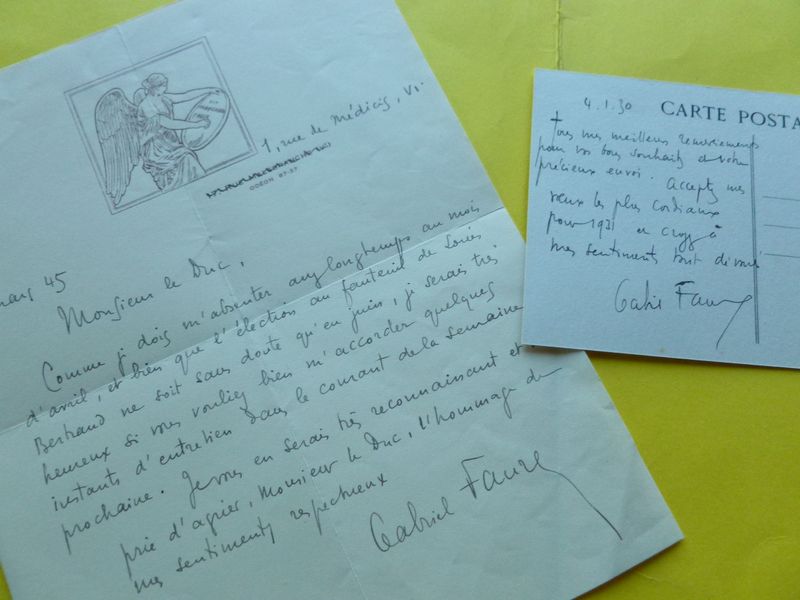 1, rue de Médicis, VIe
ODÉON 07-37
mars 45
Monsieur le Duc,
Comme je dois m'absenter assez longtemps au mois
d'avril, et bien que l'élection au fauteuil de Louis
Bertrand ne soit sans doute qu'en juin, je serais très
heureux si vous vouliez bien m'accorder quelques
instants d'entretien dans le courant de la semaine
prochaine. Je vous en serais très reconnaissant et
prie d'agréer, Monsieur le Duc, l'hommage de
mes sentiments respectueux
Gabriel Faure
4.1.30 CARTE POSTA
Tous mes meilleurs remerciements
pour vos bons souhaits et votre
précieux envoi. Acceptez mes
vœux les plus cordiaux
pour 1931 et croyez à
mes sentiments tout dévoués
Gabriel Faure